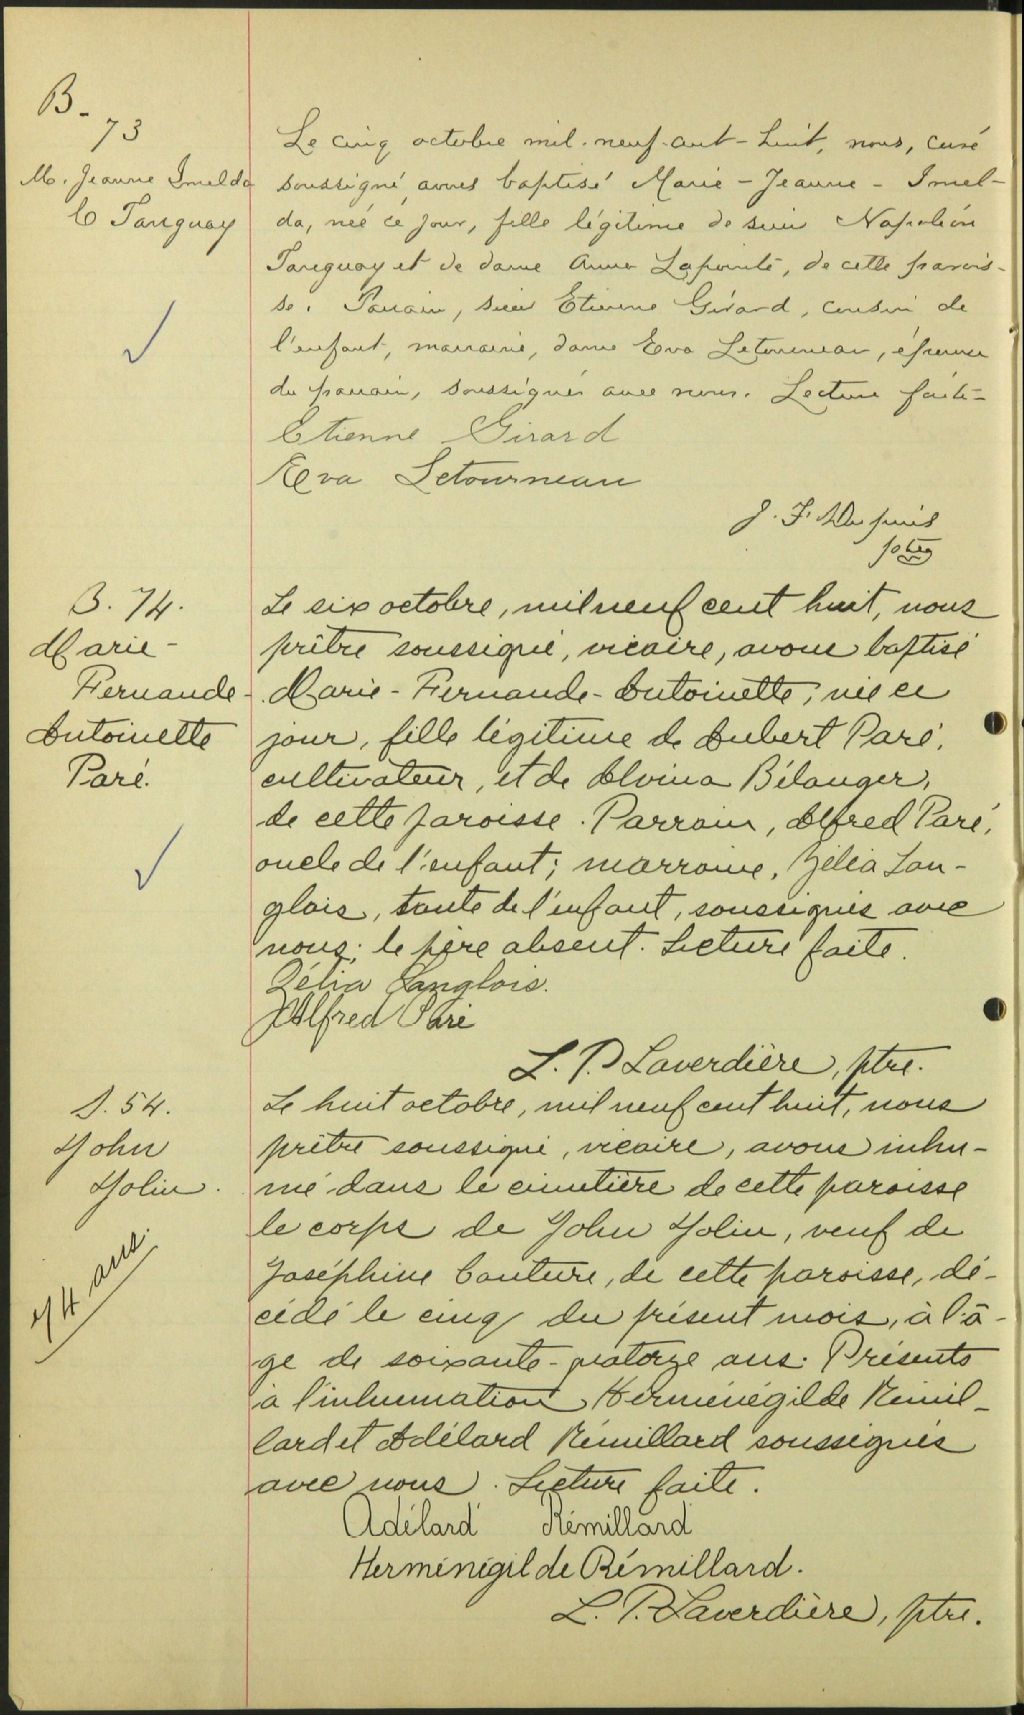 B-
73
M. Jeanne Imelda
Tanguay
Le cinq octobre mil-neuf-cent-huit, nous, curé
soussigné avons baptisé Marie-Jeanne-Imel-
da, née ce jour, fille légitime de sieur Napoléon
Tanguay et de dame Anna Lapointe, de cette parois-
se. Parrain, sieur Etienne Girard, cousin de
l'enfant, marraine, dame Eva Letourneau, épouse
du parrain, soussignés avec nous. Lecture faite-
Etienne Girard
Eva Letourneau
J. F. Dupuis
ptre
B. 74.
Marie-
Fernande-
Antoinette
Paré.
Le six octobre, mil neuf cent huit, nous
prêtre soussigné, vicaire, avons baptisé
Marie-Fernande-Antoinette, née ce
jour, fille légitime de Aubert Paré,
cultivateur, et de Alvina Bélanger,
de cette paroisse. Parrain, Alfred Paré,
oncle de l'enfant; marraine, Zélia Lan-
glois, tante de l'enfant, soussignés avec
nous; le père absent. Lecture faite.
Zélia Langlois.
Alfred Paré
L. P. Laverdière, ptre.
S. 54.
John
Jolin.
74 ans.
Le huit octobre, mil neuf cent huit, nous
prêtre soussigné, vicaire, avons inhu-
mé dans le cimetière de cette paroisse
le corps de John Jolin, veuf de
Joséphine Couture, de cette paroisse, dé-
cédé le cinq du présent mois, à l'â-
ge de soixante-quatorze ans. Présents
à l'inhumation Herménégilde Rémil-
lard et Adélard Rémillard soussignés
avec nous. Lecture faite.
Adélard Rémillard
Herménégilde Rémillard.
L. P. Laverdière, ptre.